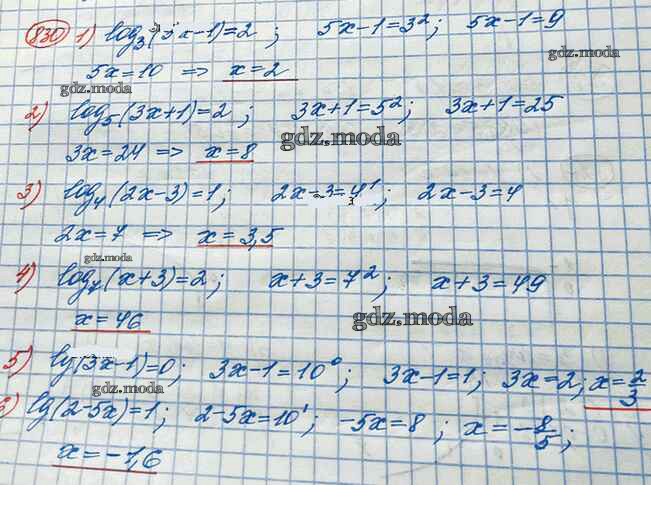 830 1) log₃(5x-1)=2 ; 5x-1=3²; 5x-1=9
5x=10 => x=2
gdz.moda
2) log₅(3x+1)=2 ; 3x+1=5²; 3x+1=25
gdz.moda
3x=24 => x=8
gdz.moda
3) log₄(2x-3)=1; 2x-3=4¹; 2x-3=4
2x=7 => x=3,5
gdz.moda
4) log₇(x+3)=2; x+3=7²; x+3=49
x=46
gdz.moda
5) lg(3x-1)=0; 3x-1=10⁰; 3x-1=1; 3x=2; x=2/3
gdz.moda
6) lg(2-5x)=1; 2-5x=10¹; -5x=8 ; x=-8/5;
x=-1,6